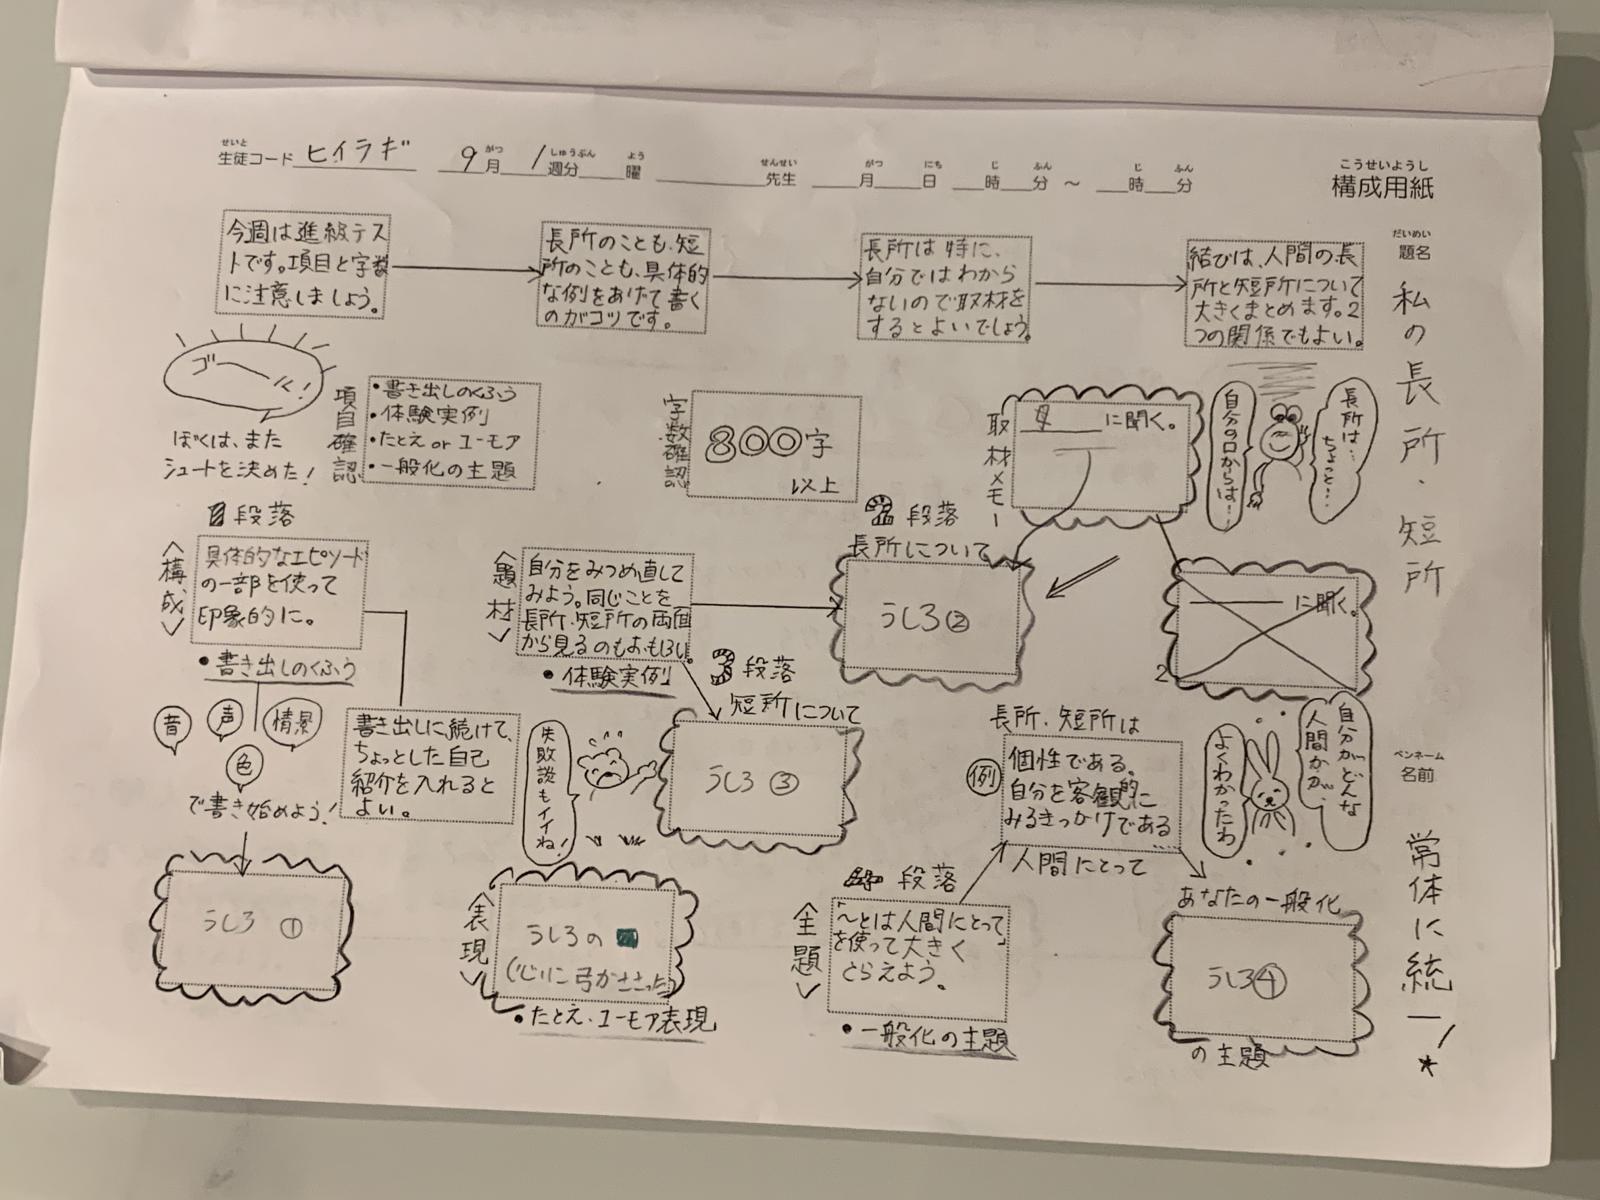 せいと
生徒コード ヒイラギ 9月 がつ 1週分 しゅうぶん 曜 よう 先生 せんせい 月 がつ 日 にち 時 じ 分 ふん ～ 時 じ 分 ふん
こうせいようし
構成用紙
だいめい
題名
私の長所・短所
ペンネーム
名前
常体に統一!
今週は進級テス
トです。項目と字数
に注意しましょう。
長所のことも、短
所のことも、具体的
な例をあげて書く
のがコツです。
長所は特に、
自分ではわから
ないので取材を
するとよいでしょう。
結びは、人間の長
所と短所について
大きくまとめます。2
つの関係でもよい。
ゴール!
ぼくは、また
シュートを決めた!
項目確認
・書き出しのくふう
・体験実例
・たとえ or ユーモア
・一般化の主題
字数確認
800字
以上
取材メモー
母 に聞く。
長所は…
ちょっと…
自分の口からは…
1段落
〈構成〉
具体的なエピソード
の一部を使って
印象的に。
・書き出しのくふう
音
声
情景
色
で書き始めよう!
書き出しに続けて、
ちょっとした自己
紹介を入れると
よい。
うしろ ①
〈題材〉
自分をみつめ直して
みよう。同じことを
長所・短所の両面
から見るのもおもしろい。
・体験実例
2段落
長所について
うしろ②
に聞く。
2
3段落
短所について
うしろ ③
失敗談も
イイね!
〈表現〉
うしろの
(じりに弓がささった)
・たとえ・ユーモア表現
長所・短所は
例
個性である。
自分を客観的に
みるきっかけである
……
人間にとって
自分がどんな
人間かが、
よくわかったわ
4段落
〈主題〉
「～とは人間にとって」
を使って大きく
とらえよう。
・一般化の主題
あなたの一般化
うしろ④
の主題